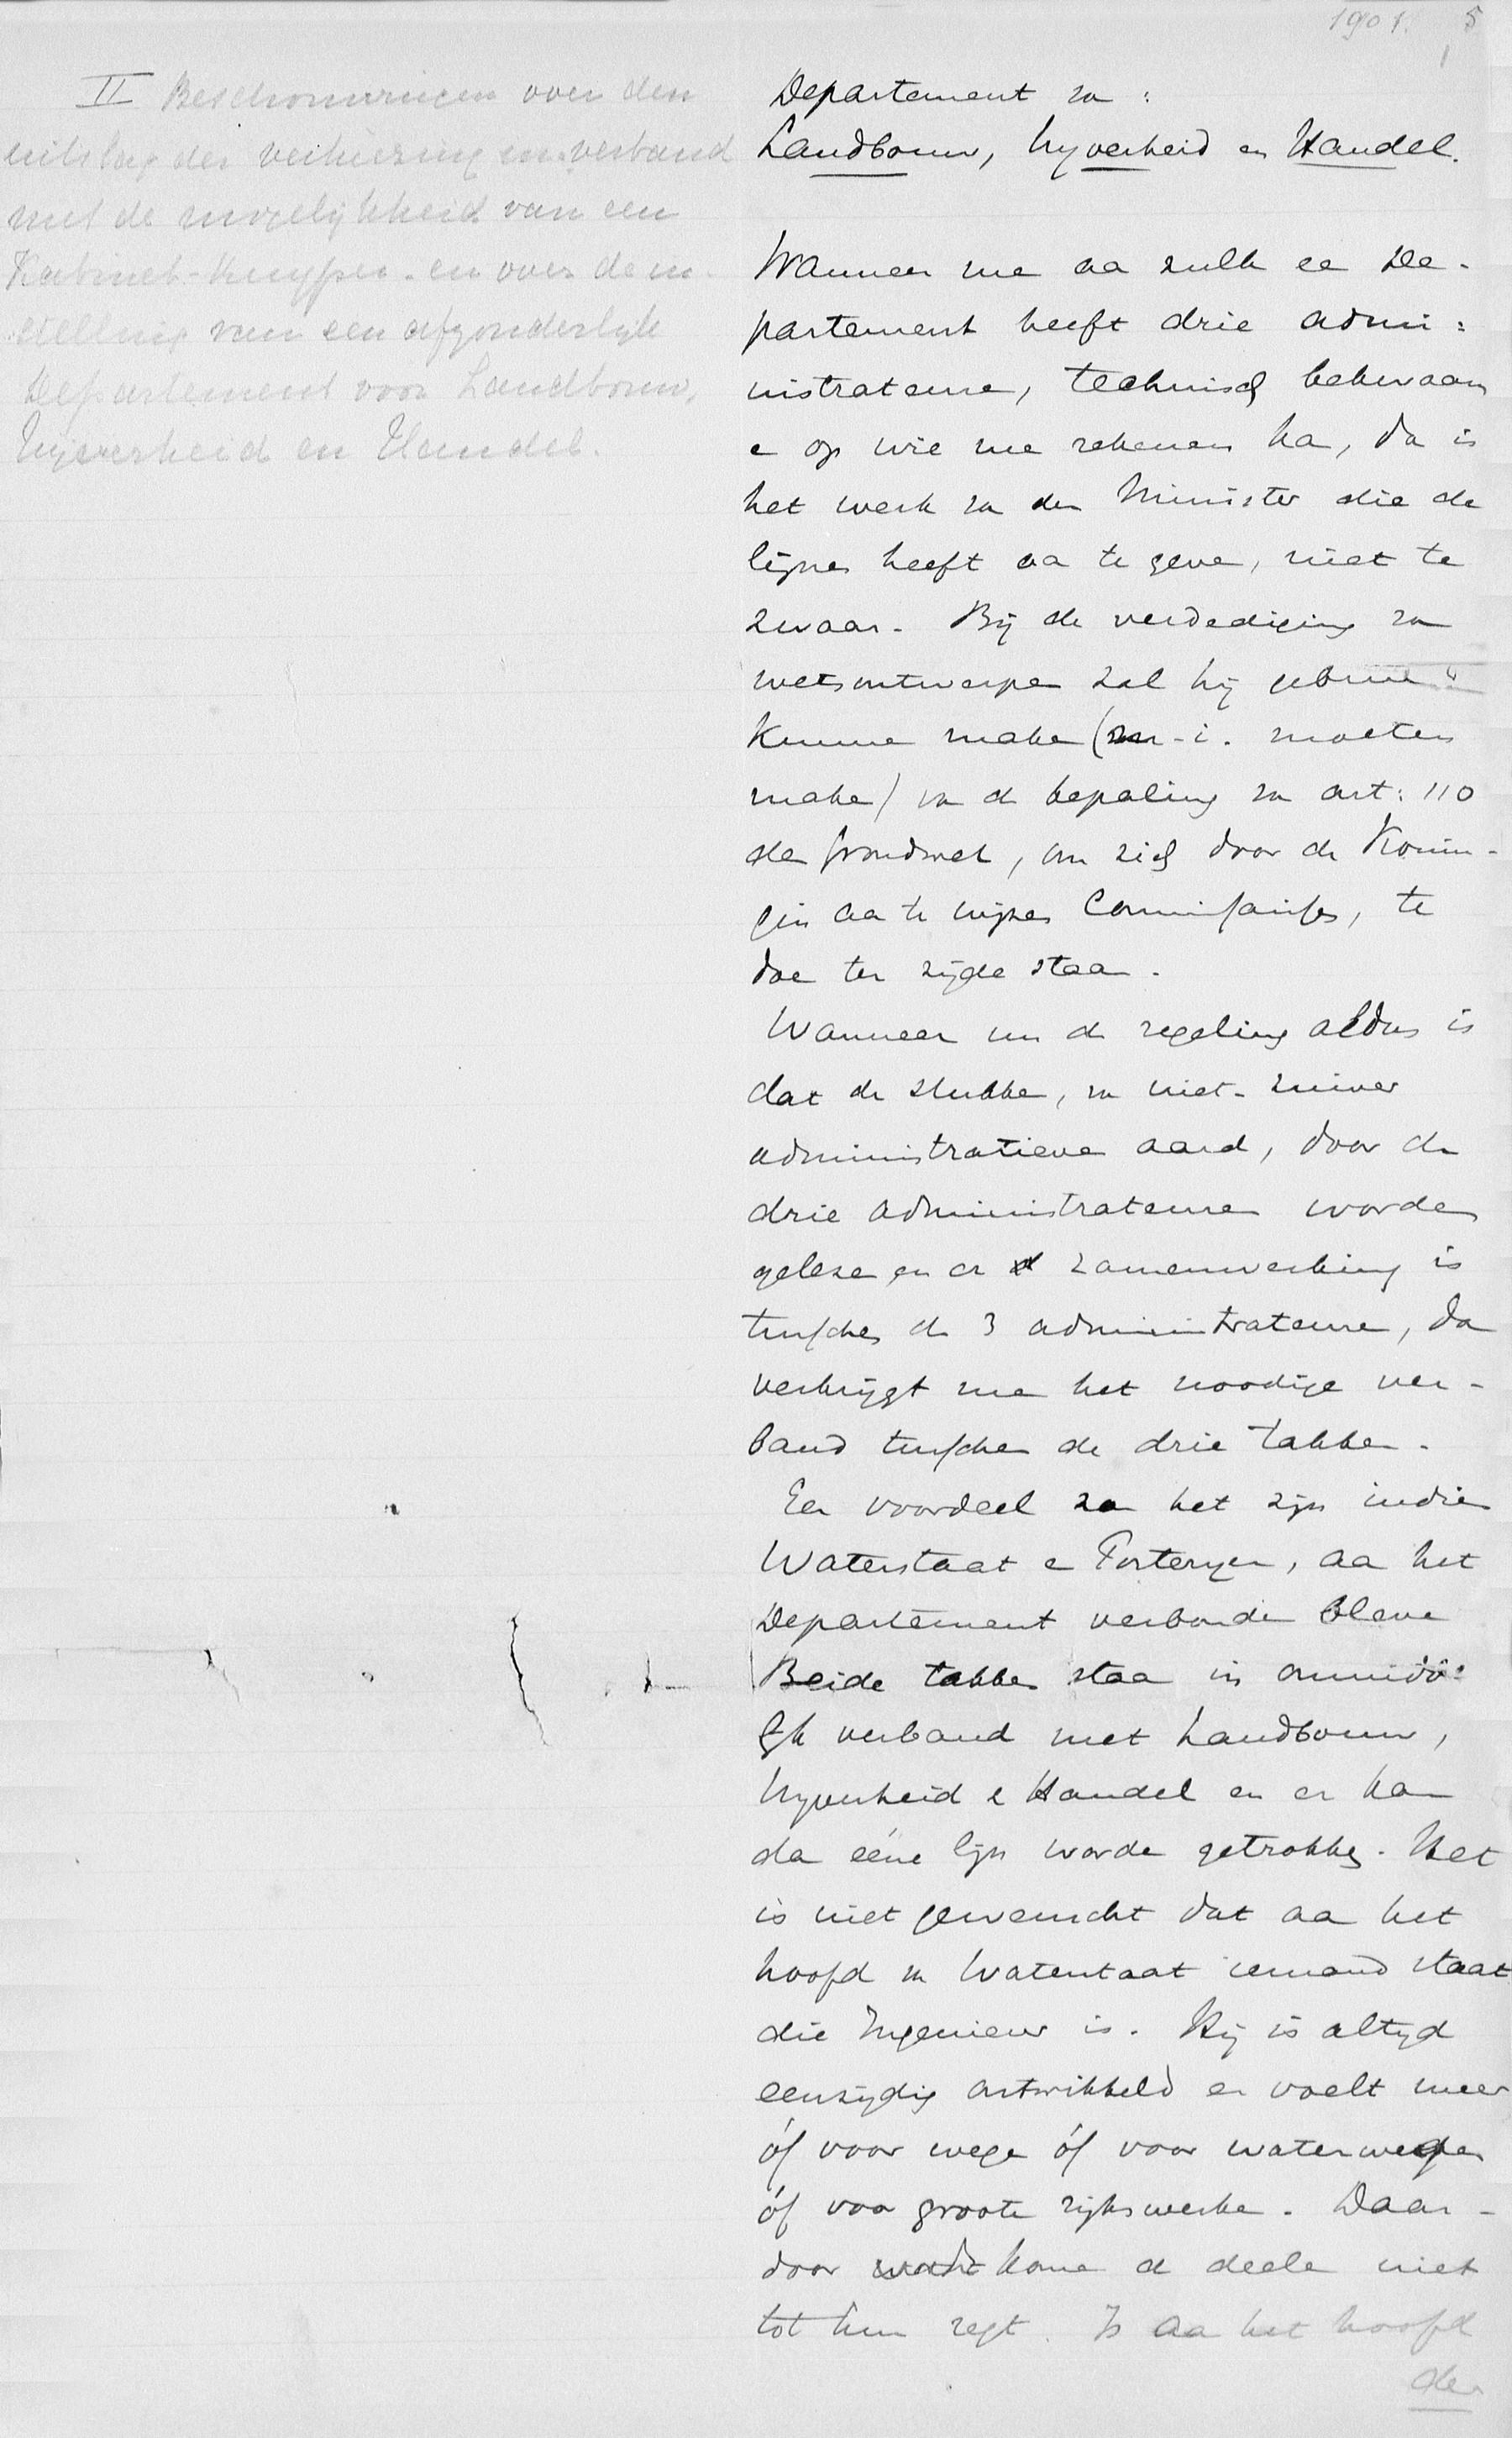 1901. 5
1
II Beschouwingen over den
uitslag der verkiezing in verband
met de mogelijkheid van een
Kabinet-Kuyper - en over de in-
stelling van een afzonderlijk
Departement voor Landbouw,
Nijverheid en Handel.
Departement va :
Landbouw, Nyverheid en Handel.
Wanneer me aa zulk ee De-
partement heeft drie admi:
nistrateurs, technisch bekwaam
e op wie me rekenen ka, da is
het werk va den Minister die de
lijnen heeft aa te geve, niet te
zwaar. Bij de verdediging va
wetsontwerpe zal hij gebruik
kunne make (m.i. moeten
make) va d bepaling va art: 110
der Grondwet, om zich door de Konin-
gin aa te wijzen Commissarissen, te
doe ter zijde staa.
Wanneer nu d regeling aldus is
dat de stukke, va niet-zuiver
administratieve aard, door de
drie administrateuren worden
geleze en er samenwerking is
tusschen de 3 administrateure, da
verkrijgt me het noodige ver-
band tusschen de drie takke.
Ee voordeel zo het zijn indien
Waterstaat e Posterijen, aa het
Departement verbonde bleve
Beide takken staa in onmidde:
lijk verband met Landbouw,
Nyverheid e Handel en er ka
da ééne lijn worde getrokken. Het
is niet gewenscht dat aa het
hoofd va Waterstaat iemand staat
die Ingenieur is. Hij is altijd
eenzijdig ontwikkeld en voelt meer
óf voor wege óf voor waterwegen
óf voor groote rijkswerke. Daar-
door wordt kome d deele niet
tot hun regt. Is aa het hoofd
der